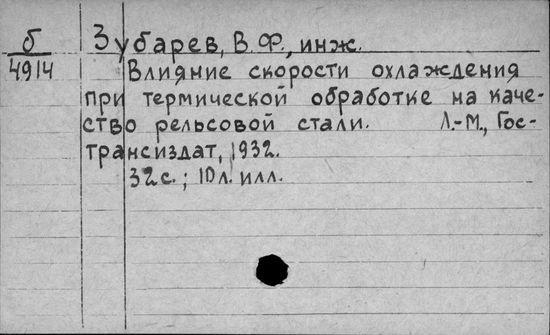 б
4914
Зубарев, В.Ф., инж.
Влияние скорости охлаждения
при термической обработке на каче-
ство рельсовой стали. Л.-М., Гос-
трансиздат, 1932.
32с.; 10л. илл.